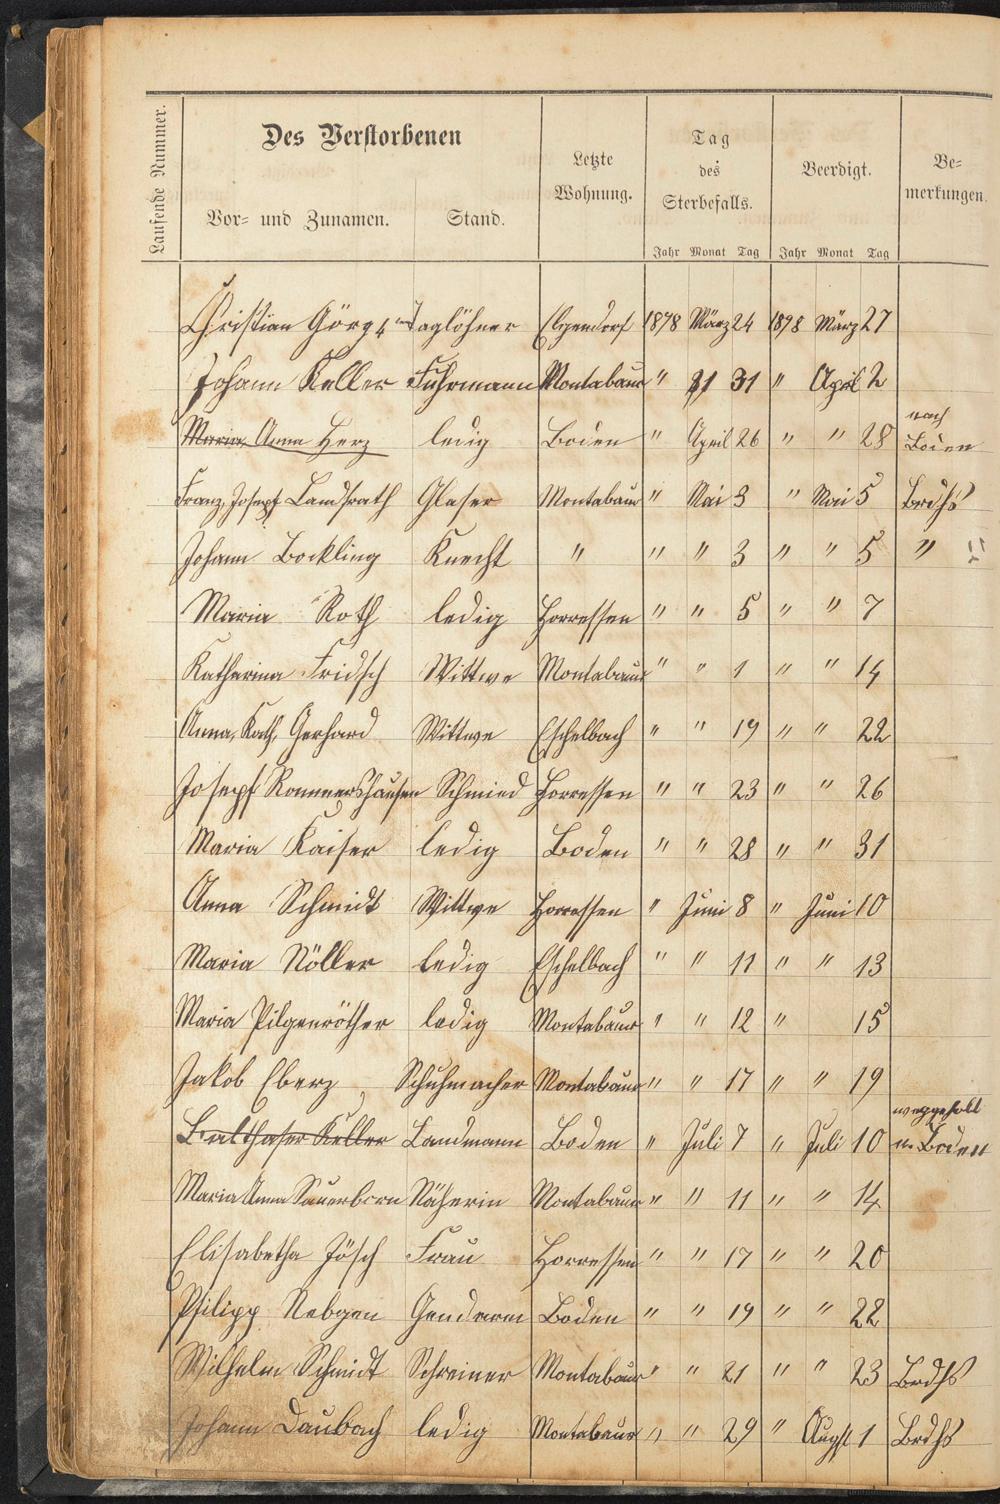 Laufende Nummer.
Des Verstorbenen
Vor= und Zunamen. Stand.
Letzte Wohnung.
Tag des Sterbefalls.
Beerdigt.
Be= merkungen.
Jahr Monat Tag Jahr Monat Tag
Christian Görg 4 Taglöhner Elgendorf 1878 März 24 1898 März 27
Johann Keller Fuhrmann Montabaur " 31 " April 2
Maria Anna Herz ledig Boden " April 26 " " 28 nach Boden
Franz, Josepf Landsrath Glaser Montabaur " Mai 3 " Mai 5 Brdhs
Johann Bockling Knecht " " " 3 " " 5 "
Maria Roth ledig Horressen " " 5 " " 7
Katharina Fridsch Wittwe Montabaur " " 1 " " 14
Anna, Kath, Gerhard Wittwe Eschelbach " " 19 " " 22
Josepf Rommershausen Schmied Horressen " " 23 " " 26
Maria Kaiser ledig Boden " " 28 " " 31
Anna Schmidt Wittwe Horressen " Juni 8 " Juni 10
Maria Nöller ledig Eschelbach " " 11 " " 13
Maria Pilgenröther ledig Montabaur " " 12 " 15
Jakob Eberz Schuhmacher Montabaur " " 17 " " 19
Balthaser Keller Landmann Boden " Juli 7 " Juli 10 weggeholt n. Boden
Maria Anna Sauerborn Näherin Montabaur " " 11 " " 14
Elisabetha Jösch Frau Horressen " " 17 " " 20
Philipp Nebgen Gendarm Boden " " 19 " " 22
Wilhelm Schmidt Schreiner Montabaur " " 21 " " 23 Brdhs
Johann Daubach ledig Montabaur " " 29 " Augst 1 Brdhs